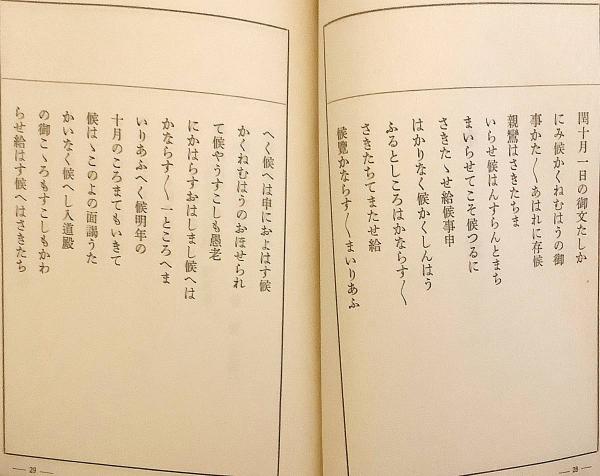 閏十月一日の御文たしか
にみ候かくねむはうの御
事かた〱あはれに存候
親鸞はさきたちま
いらせ候はんすらんとまち
まいらせてこそ候つるに
さきたゝせ給候事申
はかりなく候かくしんはう
ふるとしころはかならす〱
さきたちてまたせ給
候覧かならす〱まいりあふ
28
へく候へは申におよはす候
かくねむはうのおほせられ
て候やうすこしも愚老
にかはらすおはしまし候へは
かならす〱一ところへま
いりあふへく候明年の
十月のころまてもいきて
候はゝこのよの面謁うた
かいなく候へし入道殿
の御こゝろもすこしもかわ
らせ給はす候へはさきたち
29